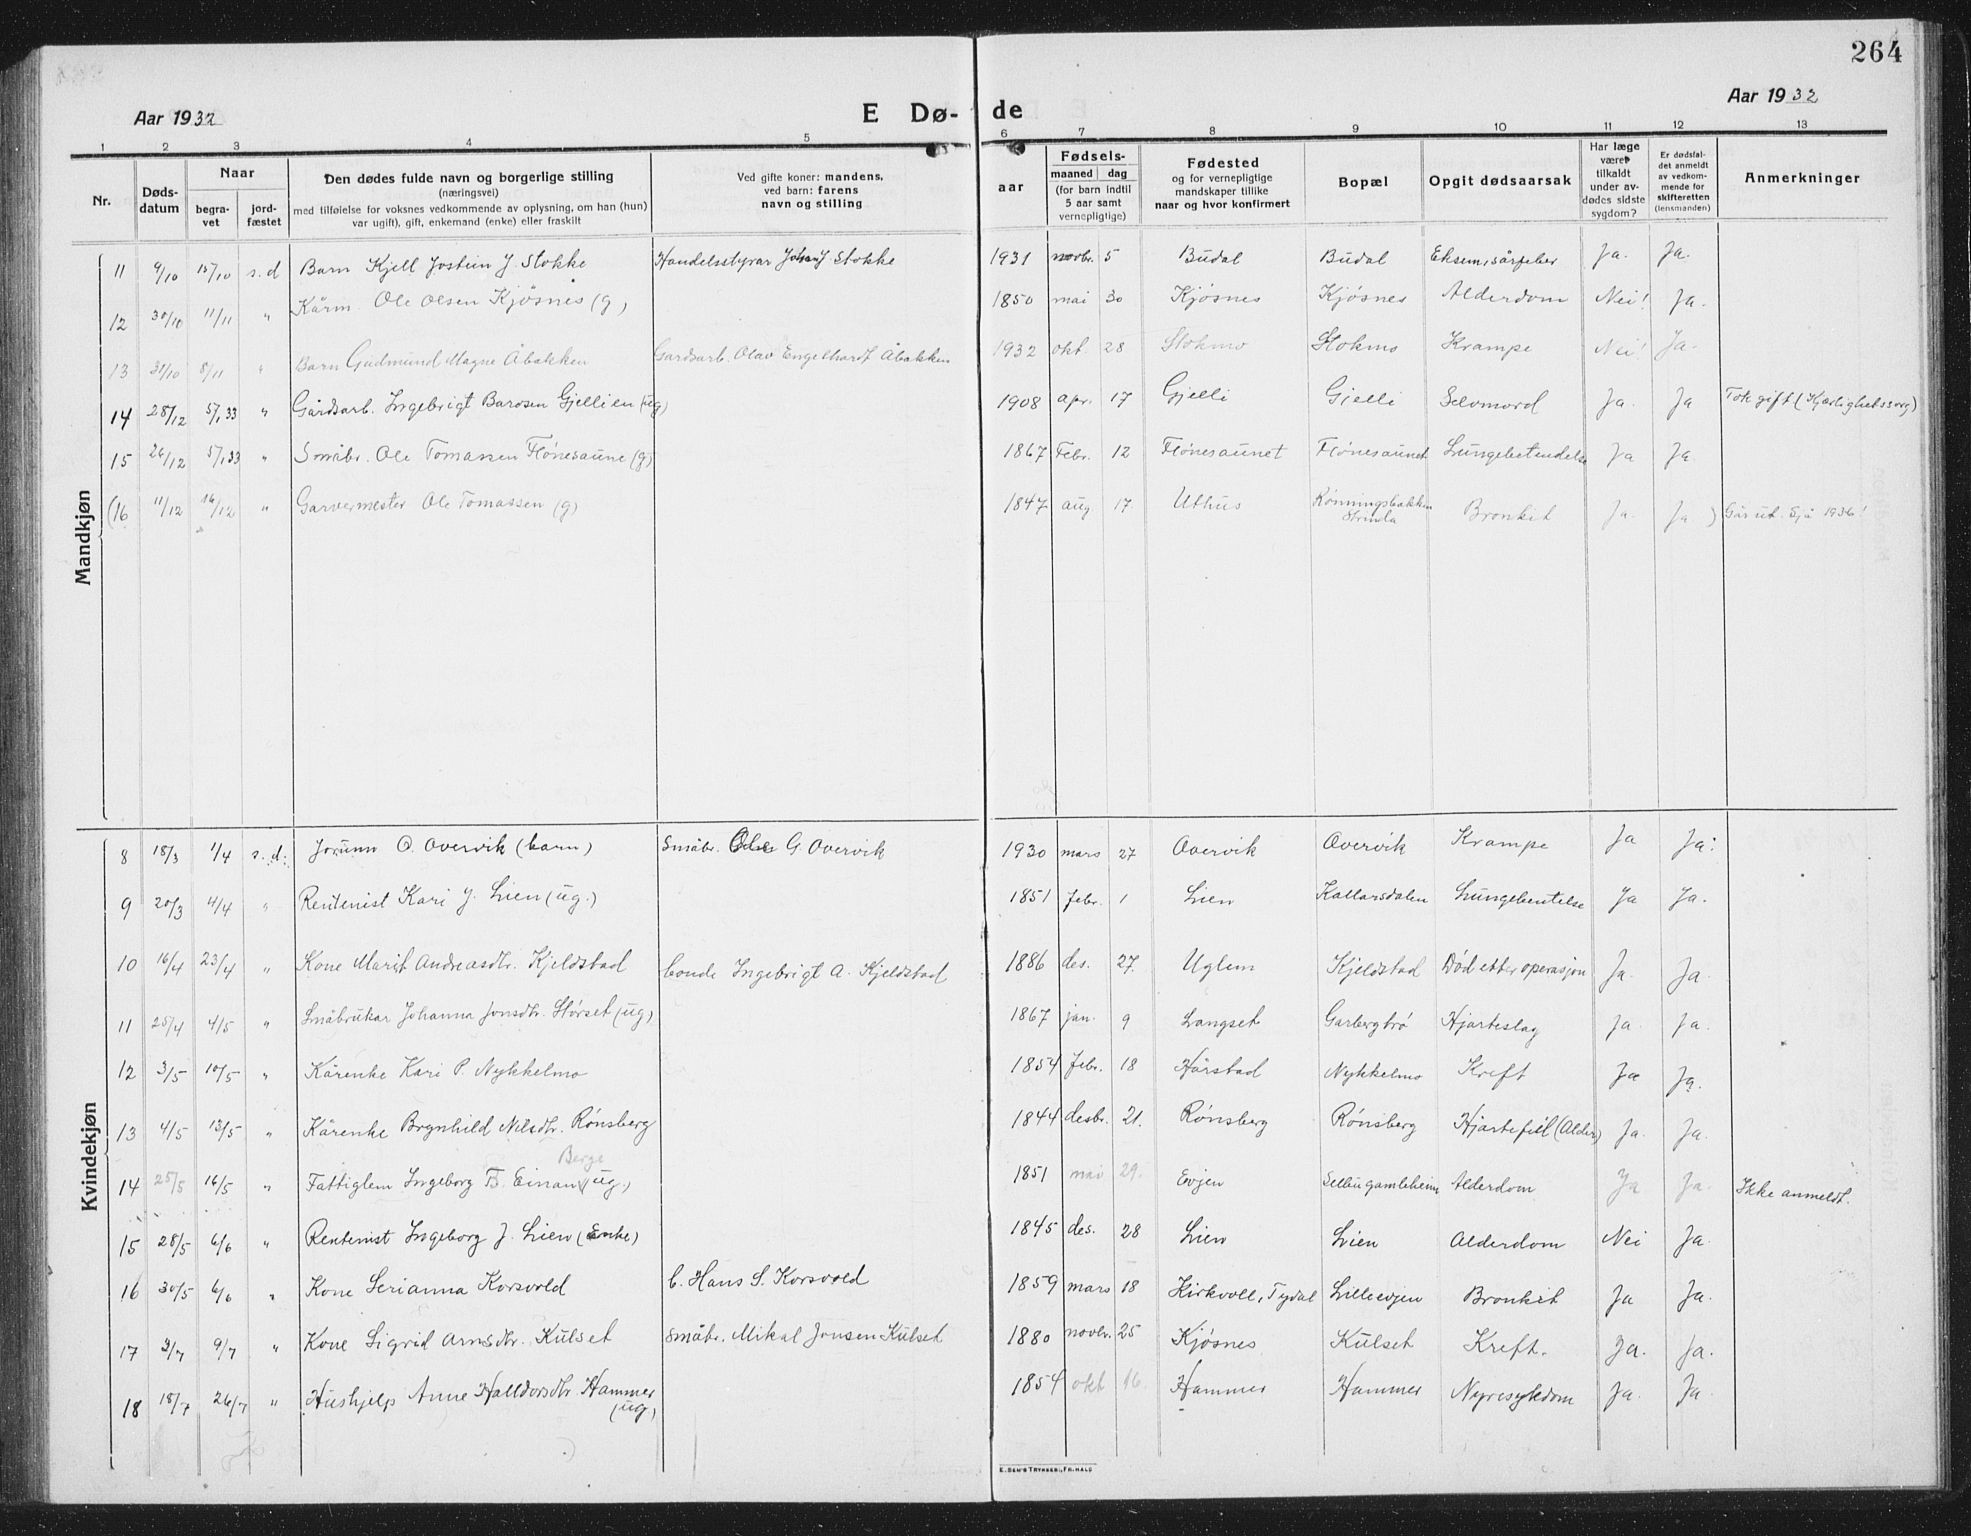 264
Aar 1932
E Dø- de
Aar 1932
1 2 3 4 5 6 7 8 9 10 11 12 13
Nr.
Døds-
datum
Naar
begra-
vet
jord-
fæstet
Den dødes fulde navn og borgerlige stilling
(næringsvei)
med tilføielse for voksnes vedkommende av oplysning, om han (hun)
var ugift), gift, enkemand (enke) eller fraskilt
Ved gifte koner: mandens,
ved barn: farens
navn og stilling
aar
Fødsels-
maaned dag
(for barn indtil
5 aar samt
vernepligtige)
Fødested
og for vernepligtige
mandskaper tillike
naar og hvor konfirmert
Bopæl
Opgit dødsaarsak
Har læge
været
tilkaldt
under av-
dødes sidste
sygdom?
Er dødsfal-
det anmeldt
av vedkom-
mende for
skifteretten
(lensmanden)
Anmerkninger
Mandkjøn
11 9/10 15/10 s. d Barn Kjell Jostein J. Stokke Handelsstyrar Johan J Stokke 1931 novbr. 5 Budal Budal Eksem, sårfeber Ja. Ja.
12 30/10 11/11 " Kårm. Ole Olsen Kjøsnes (g) 1850 mai 30 Kjøsnes Kjøsnes Alderdom Nei! Ja.
13 31/10 8/11 " Barn Gudmund Magne Åbakken Gardsarb. Olav Engelhardt Åbakken 1932 okt. 28 Stokmo Stokmo Krampe Nei! Ja.
14 28/12 5/1 33 " Gårdsarb. Ingebrigt Barosen Gjellien (ug) 1908 apr. 17 Gjelli Gjelli Selvmord Ja. Ja Tok gift (Kjærlighetssorg)
15 26/12 5/1 33 " Småbr. Ole Tomassen Flønesaune (g) 1867 Febr. 12 Flønesaunet Flønesaunet Lungebetendelse Ja Ja.
(16 11/12 16/12 " Garvermester Ole Tomassen (g) 1847 aug 17. Uthus Rønningsbakken Strinda Bronkit Ja. Ja ) Går ut. Sjå 1936!
Kvindekjøn
8 18/3 1/4 s. d: Jorunn O. Overvik (barn) Småbr. Ole G. Overvik 1930 mars 27 Overvik Overvik Krampe Ja Ja.
9 20/3 4/4 " Rentenist Kari J. Lien (ug.) 1851 febr. 1 Lien Kallarsdalen Lungebentelse Ja Ja.
10 16/4 23/4 " Kone Marit Andreasdtr. Kjeldstad bonde Ingebrigt A. Kjeldstad 1886 des. 27. Uglem Kjeldstad Død etter operasjon Ja. Ja.
11 25/4 4/5 " Småbrukar Johanna Jonsdtr. Størset (ug) 1867 jan. 9 Langset Garbergtrø Hjarteslag Ja. Ja.
12 3/5 10/5 " Kårenke Kari P. Nykkelmo 1854 febr. 18 Hårstad Nykkelmo Kreft Ja Ja.
13 4/5 13/5 " Kårenke Brynhild Nilsdtr. Rønsberg 1844 desbr. 21. Rønsberg Rønsberg Hjartefeil (Alder) Ja. Ja.
Berge
14 25/5 16/5 " Fattiglem Ingeborg T. Einan (ug.) 1851 mai 29. Evjen Selbu gamleheim Alderdom Ja Ja. Ikke anmeldt.
15 28/5 6/6 " Rentenist Ingeborg J. Lien (Enke) 1845 des. 28 Lien Lien Alderdom Nei Ja.
16 30/5 6/6 " Kone Serianna Korsvold b. Hans S. Korsvold 1859 mars 18 Kirkvoll, Tydal Lilleevjen Bronkit Ja Ja.
17 2/7 9/7 " Kone Sigrid Arnsdtr. Kulset Småbr. Mikal Jonsen Kulset 1880 novbr. 25 Kjøsnes Kulset Kreft. Ja. Ja.
18 18/7 26/7 " Hushjelp Anne Halldorsdtr. Hammer (ug) 1854 okt 16. Hammer Hammer Nyresykdom Ja. Ja.
E. SEM'S TRYKKERI, FR.HALD